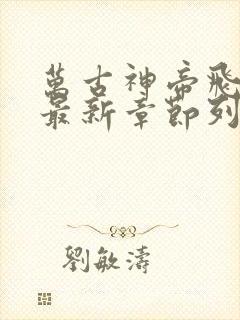 萬古神帝飛
最新章節列
劉敏濤